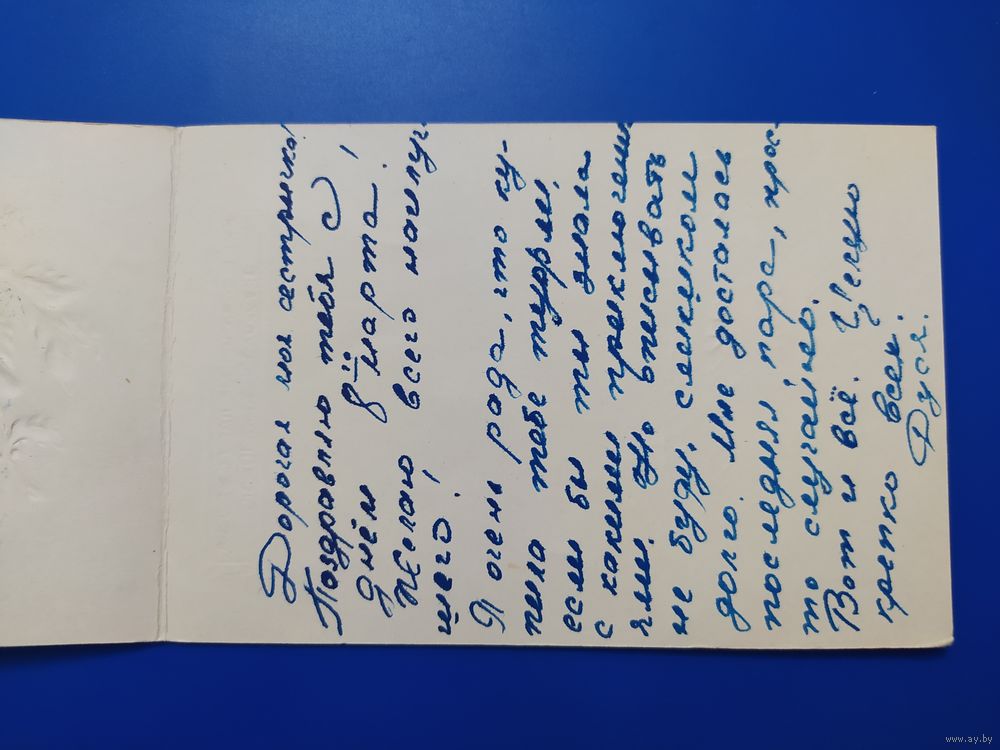 Дорогая моя сестричка!
Поздравляю тебя с
днём 8ᵘ̈ марта!
Желаю всего наилуч-
шего!
Я очень рада, что ку-
пила тебе туфли,
если бы ты знала
с какими приключени
ями. Но описывать
не буду, слишком
долго. Мне досталась
последняя пара, прос-
то случайно.
Вот и всё. Целую
крепко всех.
Дуся.
www.ay.by